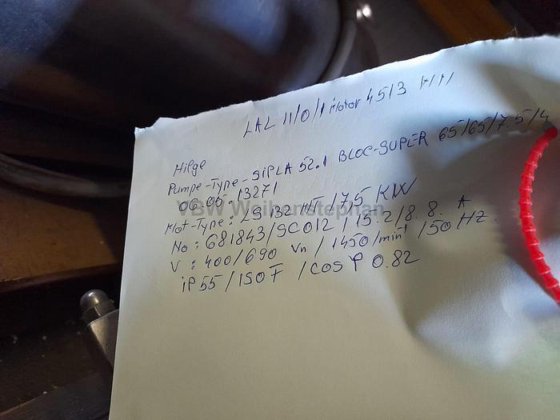 LAL 11/0/1 Motor 45/3
Hilge
Pumpe-Type-SIPLA 52.1 BLOC-SUPER 65/65/7.5/4
06.05 13271
Mot-Type: LS 132 MT /7,5 KW
No: 681843/SC012 / 15.2/8.8. A
V : 400/690 Vn / 1450/min⁻¹ /50 Hz
iP 55/ISO F /cos φ 0.82
VBW Weihenstephan